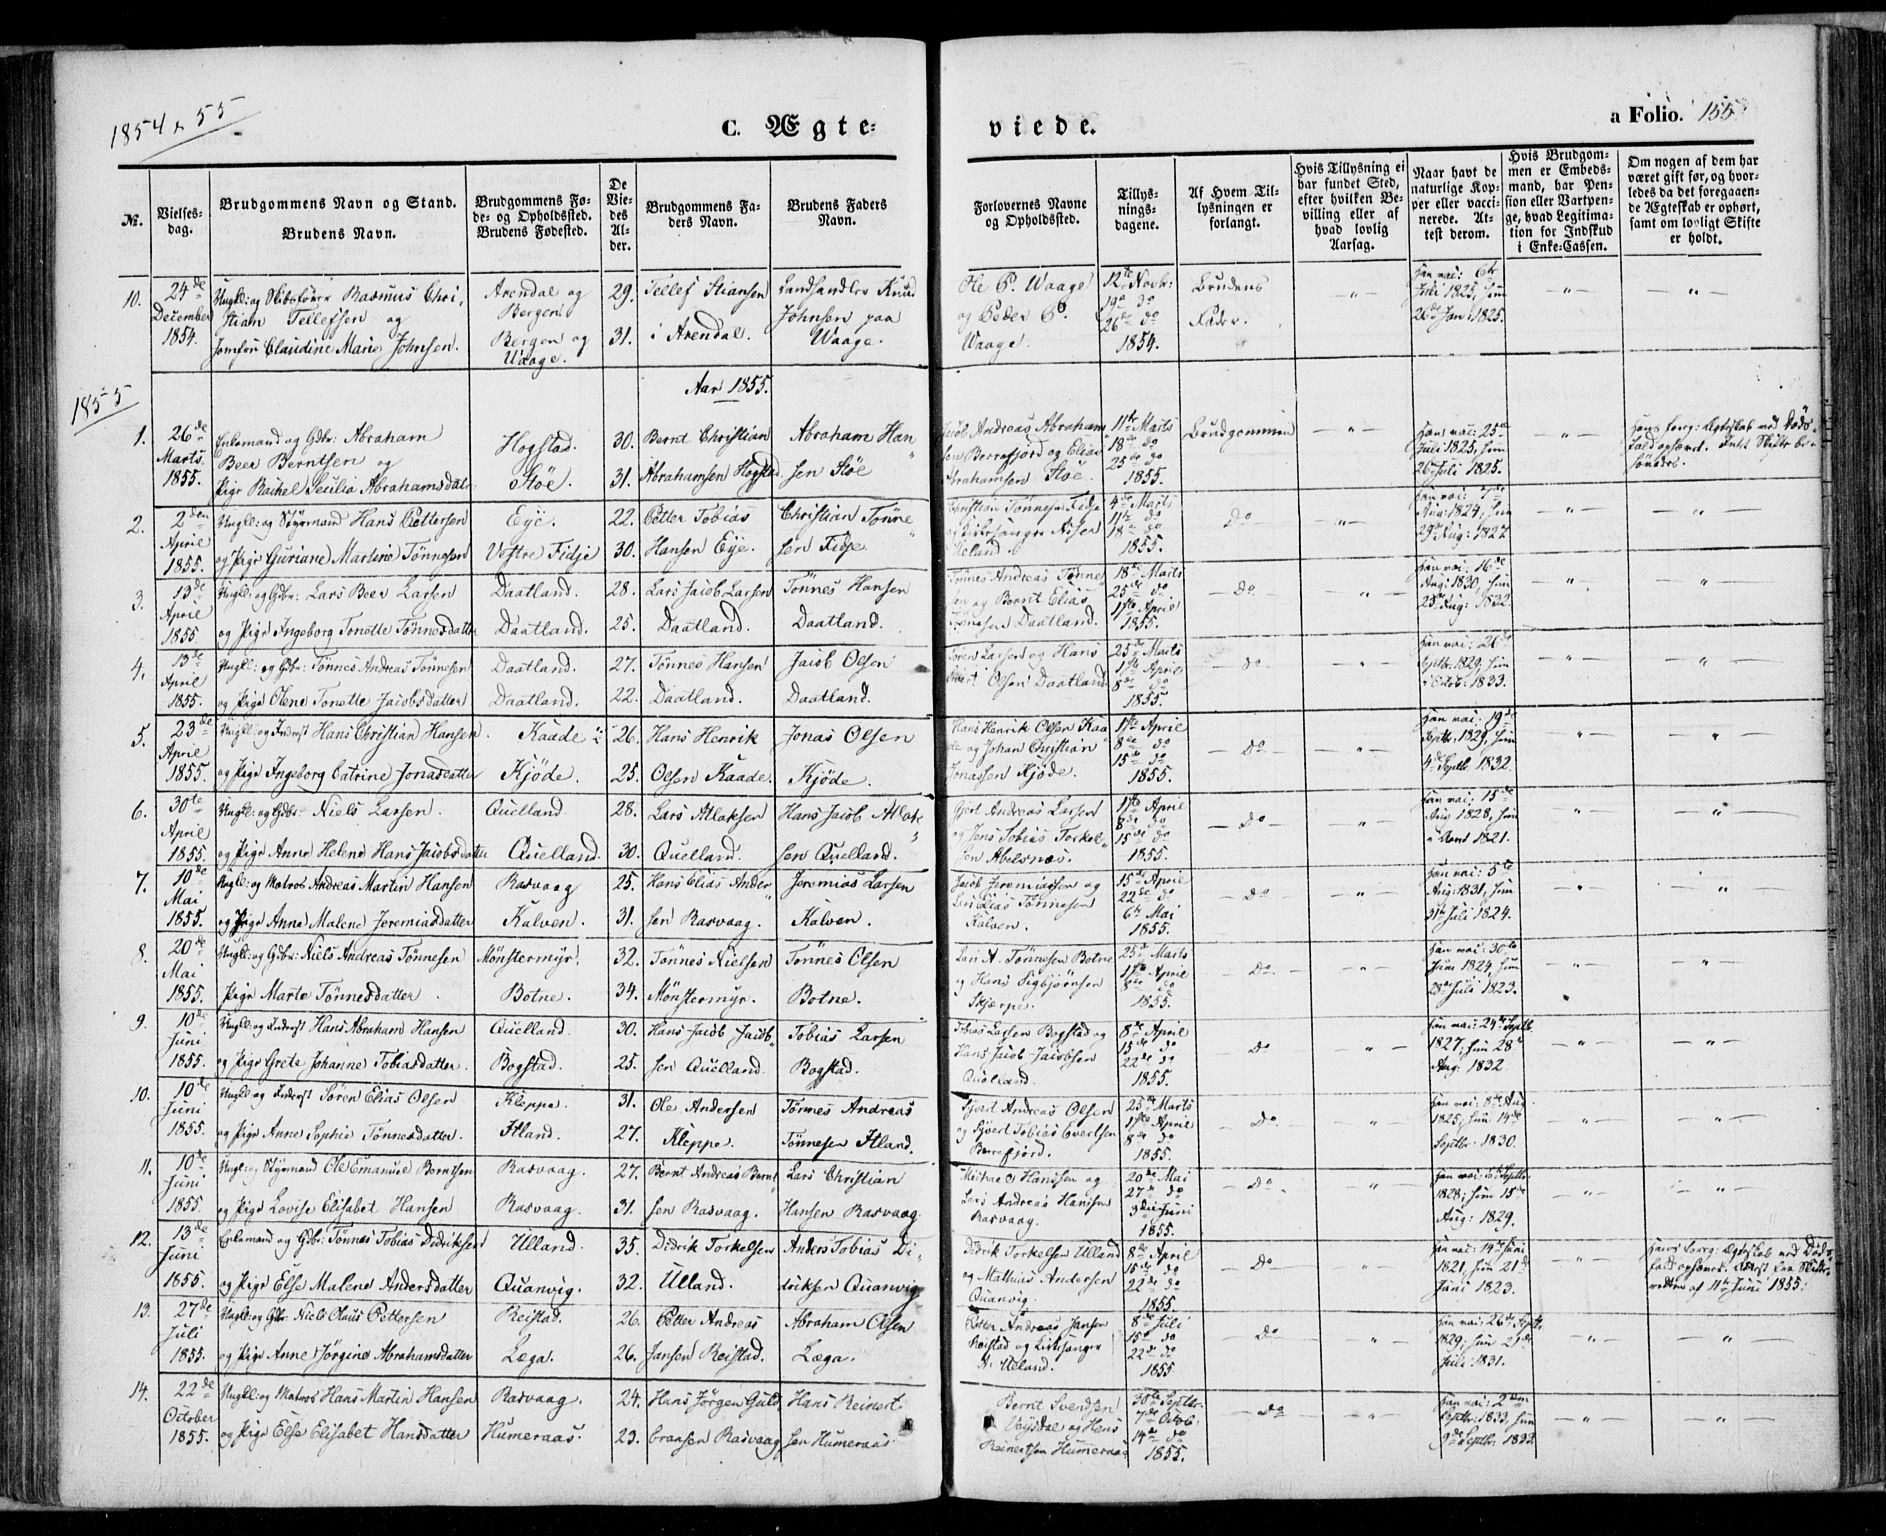 1854 & 55
C. Ægte=
viede.
a Folio. 155
№.
Vielses-dag.
Brudgommens Navn og Stand.
Brudens Navn.
Brudgommens Fø-
de- og Opholdssted.
Brudens Fødested.
De
Vie-
des
Al-
der.
Brudgommens Fa-
ders Navn.
Brudens Faders
Navn.
Forlovernes Navne
og Opholdssted.
Tillys-
nings-
dagene.
Af Hvem Til-
lysningen er
forlangt.
Hvis Tillysning ei
har fundet Sted,
efter hvilken Be-
villing eller af
hvad lovlig
Aarsag.
Naar havt de
naturlige Kop-
per eller vacci-
nerede. At-
test derom.
Hvis Brudgom-
men er Embeds-
mand, har Pen-
sion eller Vartpen-
ge, hvad Legitima-
tion for Indskud
i Enke-Cassen.
Om nogen af dem har
været gift før, og hvor-
ledes da det foregaaen-
de Ægteskab er ophørt,
samt om lovligt Skifte
er holdt.
10. 24de December 1854. Ungkl: og Skibsfører Rasmus Chri-
stian Tellefsen og
Jomfru Claudine Marie Johnsen.
Arendal og
Bergen
Bergen og
Waage.
29.
31.
Tellef Stiansen
i Arendal.
Landhandler Knud
Johnsen paa
Waage.
Ole P. Waage
og Peder P.
Waage.
12te Novb:
19de do
26de do
1854.
Brudens
Fader.
Han vai: 6te
Juli 1825, hun
26de Jan: 1825.
Aar 1855.
1855
1. 26de Marts 1855. Enkemand og Gdbr: Abraham
Beer Berntsen og
Pige Rachel Secilia Abrahamsdatt:
Hogstad.
Støe.
30.
31.
Bernt Christian
Abrahamsen Hogstad
Abraham Han
sen Støe
Jacob Andreas Abraham
sen Berrefjord og Elias
Abrahamsen Støe.
11te Marts
18de do
25de do
1855.
Brudgommen
Han vai: 25de
Juli 1825, hun
26de Juli 1825.
Hans forrg: Ægteskab ved Døds-
fald ophævet.
2. 2den April 1855. Ungkl: og Styrmand Hans Pettersen
og Pige Guriane Martine Tønnesen
Eye.
Vestre Fidje
22.
30.
Petter Tobias
Hansen Eye.
Christian Tønne
sen Fidje
Christian Tønnesen Fidje
4de Marts
11te do
18de do
1855.
Do
Han vai: 7de
Aug: 1824, hun
29de Aug: 1827
3. 13de April 1855 Ungkl: og Gdbr: Lars Beer Larsen
og Pige Ingeborg Tonette Tønnesdatter
Daatland.
Daatland.
28.
25.
Lars Jacob Larsen
Daatland.
Tønnes Hansen
Daatland.
Tønnes Andreas Tønne
sen og Bernt Elias
Tønnesen Daatland.
18de Marts
25de do
1ste April
1855.
Do
Han vai: 16de
Aug: 1830, hun
25de Aug: 1832
4. 13de April 1855. Ungkl: og Gdbr: Tønnes Andreas Tønnesen
og Pige Olene Tonette Jacobsdatter
Daatland.
Daatland.
27.
22.
Tønnes Hansen
Daatland.
Jacob Olsen
Daatland.
Søren Larsen og Hans
Olsen Daatland
25de Marts
1ste April
8de do
1855.
Do
Han vai: 26de
Septbr: 1829, hun
i Octob: 1833.
5. 23de April 1855. Ungkl: og Inderst Hans Christian Hansen
og Pige Ingeborg Catrine Jonasdatter
Kaade
Kjøde.
26.
25.
Hans Henrik
Olsen Kaade.
Jonas Olsen
Kjøde.
Hans Henrik Olsen Kaa
de og Johan Christian
Jonassen Kjøde.
1ste April
8de do
15de do
1855.
Do
Han vai: 19de
Septbr: 1829, hun
4de Septb: 1832.
6. 30te April 1855. Ungkl: og Gdbr: Niels Larsen.
og Pige Anne Helene Hans Jacobsdatter
Quelland.
Quelland.
28.
30.
Lars Atlaksen
Quelland.
Hans Jacob Atlak
sen Quelland.
Gjert Andreas Larsen
og Jens Tobias Torkel
sen Abelsnæs.
1ste April
8de do
15de do
1855.
Do
Han vai: 15de
Aug 1828, hun
1821.
7. 10de Mai 1855. Ungkl: og Matros Andreas Martin Hansen
og Pige Anne Malene Jeremiasdatter
Rasvaag
Kalven.
25.
31.
Hans Elias Ander
sen Rasvaag.
Jeremias Larsen
Kalven.
Jacob Jeremiassen og
Elias Tønnesen
Kalven.
15de April
22de do
6te Mai
1855.
Do
Han vai: 5te
Aug: 1831, hun
31te Juli 1824.
8. 20de Mai 1855. Ungkl: og Gdbr: Niels Andreas Tønnesen
Pige Marte Tønnesdatter
Mønstermyr.
Botne.
32.
34.
Tønnes Nielsen
Mønstermyr.
Tønnes Olsen
Botne.
Lars A. Tønnesen Botne
og Hans Sigbjørnsen
Skjerpe.
25de Marts
1ste April
8de do
1855.
Do
Han vai: 30te
Juni 1824, hun
28de Juli 1823.
9. 10de Juni 1855. Ungkl: og Inderst Hans Abraham Hansen
og Pige Grete Johanne Tobiasdatter.
Quelland.
Bogstad.
30.
25.
Hans Jacob Jacob
sen Quelland.
Tobias Larsen
Bogstad.
Tobias Larsen Bogstad og
Hans Jacob Jacobsen
Quelland.
8de April
15de do
22de do
1855.
Do
Han vai: 24de Septb:
1827, hun 28de
Aug: 1832
10. 10de Juni 1855. Ungkl: og Inderst Søren Elias Olsen
og Pige Anne Sophie Tønnesdatter.
Kleppe.
Itland.
31.
27.
Ole Andersen
Kleppe.
Tønnes Andreas
Tønnesen Itland.
Sjvert Andreas Olsen
og Sjvert Tobias Evertsen
Berrefjord.
25de Marts
1ste April
8de do
1855.
Do
Han vai: 8de Aug.
1825, hun 14de
Septbr: 1830.
11. 10de Juni 1855. Ungkl: og Styrmand Ole Emanuel Berntsen
og Pige Lovise Elisabet Hansen
Rasvaag.
Rasvaag.
27.
31.
Bernt Andreas Bernt
sen Rasvaag.
Lars Christian
Hansen Rasvaag
Michael Hanssen og
Lars Andreas Hanssen
Rasvaag.
20de Mai
27de do
3die Juni
1855.
Do
Han vai: 6te Septbr:
1828, hun 15de
Aug: 1829.
12. 13de Juni 1855. Enkemand og Gdbr: Tønnes Tobias Didriksen
og Pige Else Malene Andersdatter
Ulland.
Quanvig.
35.
32.
Didrik Torkelsen
Ulland.
Anders Tobias Di
driksen Quanvig
Didrik Torkelsen Ulland
og Mathias Andersen
Quanvig.
8de April
15de do
22de do
1855.
Do
Han vai: 14de Juni
1821, hun 21de
Juni 1823.
Hans forrg: Ægteskab ved Døds-
fald ophævet. Attest fra Skifte-
retten af 11te Juni 1855.
13. 27de Juli 1855. Ungkl: og Gdbr: Niels Olaus Pettersen
og Pige Anne Jørgine Abrahamsdatter
Reistad.
Læga.
26.
26.
Petter Andreas
Jansen Reistad.
Abraham Olsen
Læga.
Petter Andreas Jansen
Reistad og Kirkesanger
A. Ueland.
8de Juli
15de do
22de do
1855
Do
Han vai: 26de Septb:
1829, hun 21de
Juli 1831.
14. 22de October 1855. Ungkl: og Matros Hans Martin Hansen
og Pige Else Elisabet Hansdatter
Rasvaag.
Humeraas.
24.
23.
Hans Jørgen Guld
bransen Rasvaag
Hans Reinert
sen Humeraas
Bernt Svendsen
og Hans
Reinertsen Humeraas
30te Septbr:
7de Octob:
14de do
1855.
Do
Han vai: 2den
Septbr: 1833, hun
9de Septbr: 1833